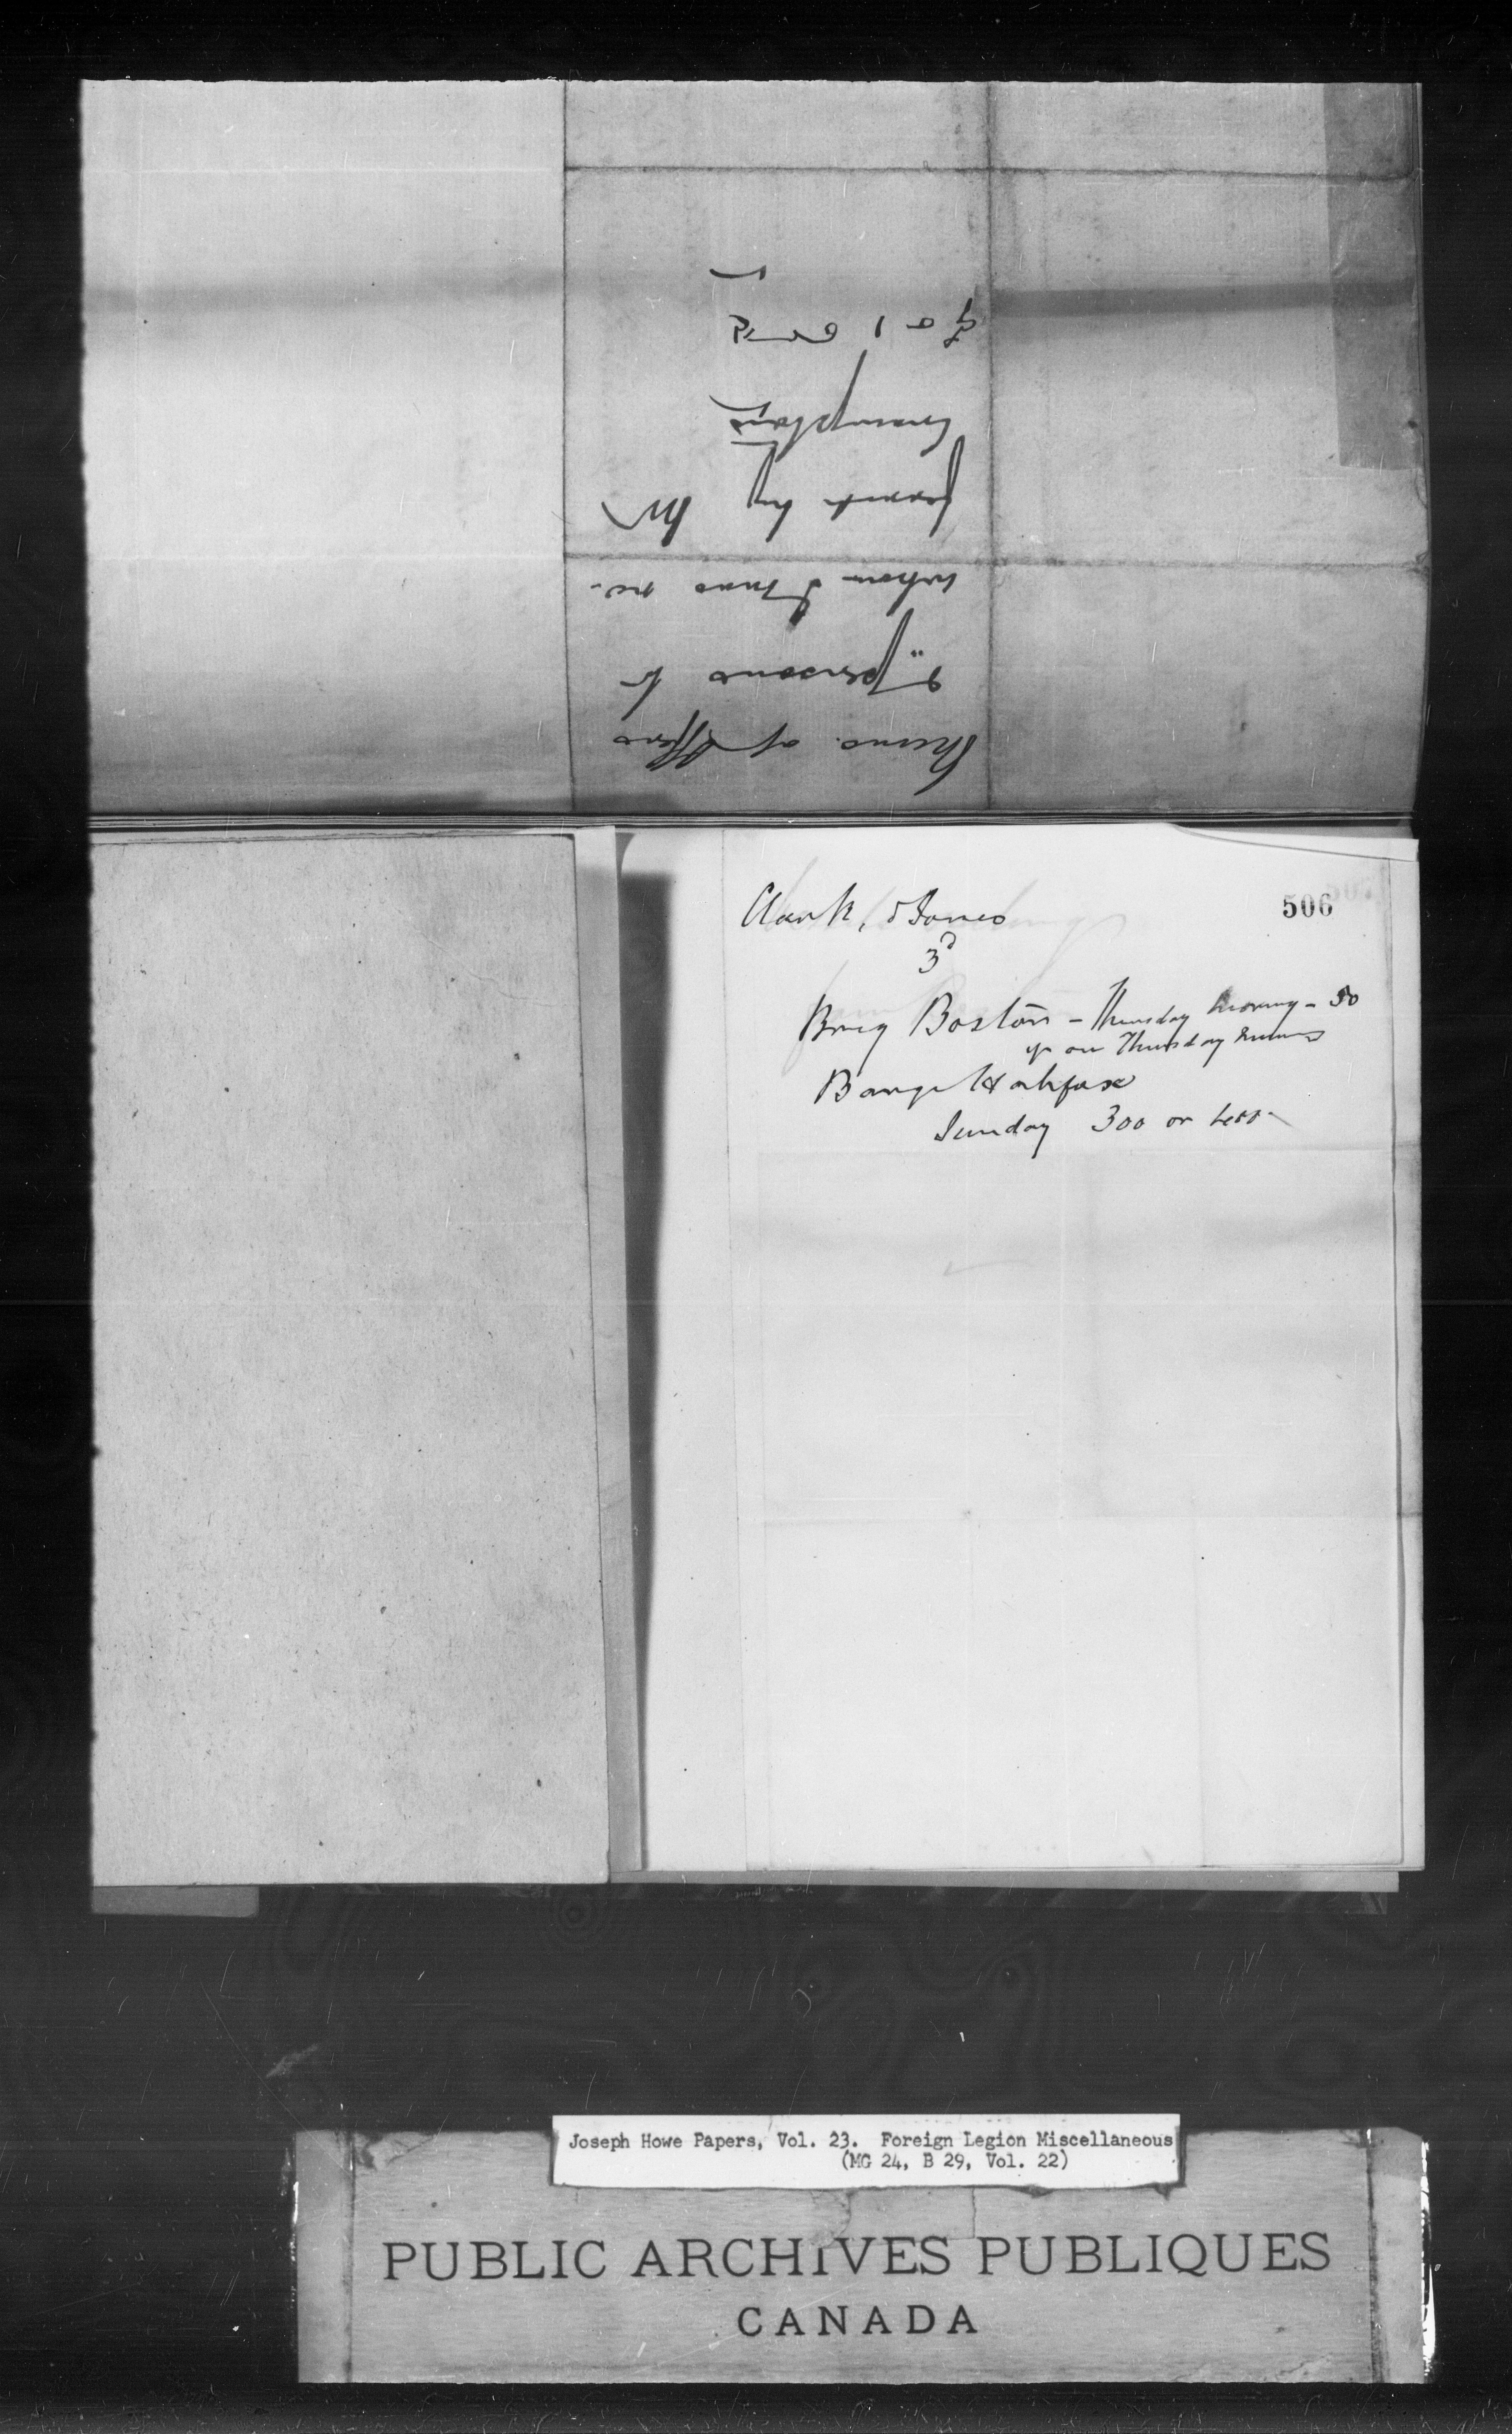 Memo. of Offers
& persons to
whom I was re-
ferred by Mr
Crampton
506
Clark, & Jones
3d
Brig Boston - Thursday Morning - 50
if on Thursday
Barque Halifax
Sunday 300 or less
Joseph Howe Papers, Vol. 23. Foreign Legion Miscellaneous
(MG 24, B 29, Vol. 22)
PUBLIC ARCHIVES PUBLIQUES
CANADA